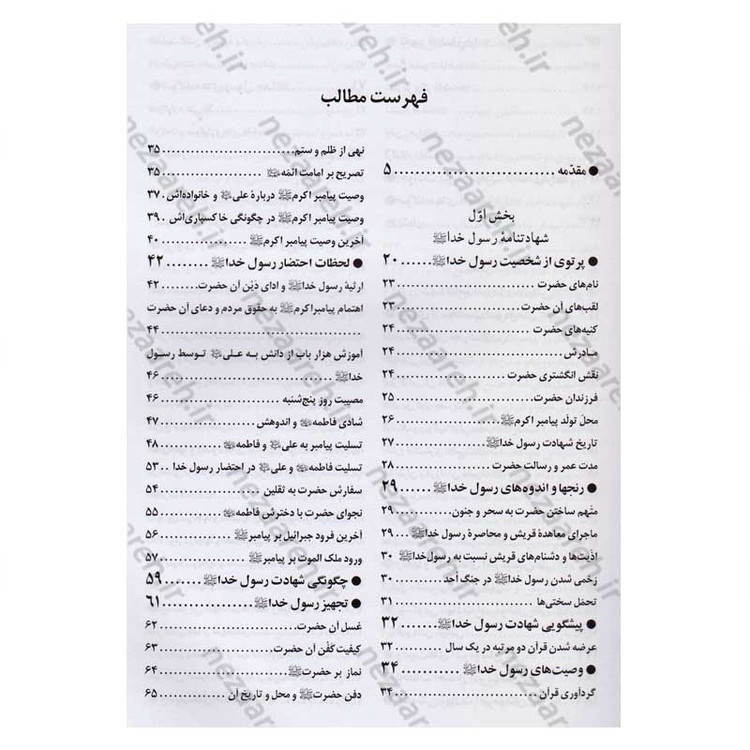 فهرست مطالب
● مقدّمه ............................ ۵
بخش اوّل
شهادتنامهٔ رسول خداﷺ
● پرتوی از شخصیت رسول خداﷺ ...... ۲۰
نام‌های حضرت ............................ ۲۳
لقب‌های آن حضرت ............................ ۲۳
کنیه‌های حضرت ............................ ۲۴
مادرش ............................ ۲۴
نقش انگشتری حضرت ............................ ۲۴
فرزندان حضرت ............................ ۲۵
محل تولّد پیامبر اکرمﷺ ............................ ۲۶
تاریخ شهادت رسول خداﷺ ............................ ۲۷
مدت عمر و رسالت حضرت ............................ ۲۸
● رنجها و اندوه‌های رسول خداﷺ ...... ۲۹
متهم ساختن حضرت به سحر و جنون .... ۲۹
ماجرای معاهدهٔ قریش و محاصرهٔ رسولﷺ ... ۲۹
اذیت‌ها و دشنام‌های قریش نسبت به رسول خداﷺ ۳۰
زخمی شدن رسول خداﷺ در جنگ اُحد ...... ۳۰
تحمّل سختی‌ها ............................ ۳۱
● پیشگویی شهادت رسول خداﷺ ...... ۳۲
عرضه شدن قرآن دو مرتبه در یک سال ...... ۳۲
● وصیت‌های رسول خداﷺ ............ ۳۴
گردآوری قرآن ............................ ۳۴
نهی از ظلم و ستم ............................ ۳۵
تصریح بر امامت ائمّه ............................ ۳۵
وصیت پیامبر اکرمﷺ دربارهٔ علی و خانواده‌اش . ۳۷
وصیت پیامبر اکرمﷺ در چگونگی خاکسپاری‌اش . ۳۹
آخرین وصیت پیامبر اکرمﷺ ............ ۴۰
● لحظات احتضار رسول خداﷺ ........ ۴۲
ارثیهٔ رسول خداﷺ و ادای دَیْن آن حضرت ...... ۴۲
اهتمام پیامبراکرمﷺ به حقوق مردم و دعای آن حضرت
............................ ۴۴
آموزش هزار باب از دانش به علی توسط رسول
خداﷺ ............................ ۴۶
مصیبت روز پنج‌شنبه ............................ ۴۶
شادی فاطمه و اندوهش ............ ۴۷
تسلیت پیامبر به علی و فاطمه ...... ۴۸
تسلیت فاطمه و علی در احتضار رسول خدا ... ۵۳
سفارش حضرت به ثقلین ............ ۵۴
نجوای حضرت با دخترش فاطمه ...... ۵۵
آخرین فرود جبرائیل بر پیامبرﷺ ...... ۵۶
ورود ملک الموت بر پیامبرﷺ ............ ۵۷
● چگونگی شهادت رسول خداﷺ ...... ۵۹
● تجهیز رسول خداﷺ ............ ۶۱
غسل آن حضرت ............................ ۶۲
کیفیت کَفَن آن حضرت ............................ ۶۳
نماز بر حضرتﷺ ............................ ۶۴
دفن حضرتﷺ و محل و تاریخ آن ............ ۶۵
nezaareh.ir